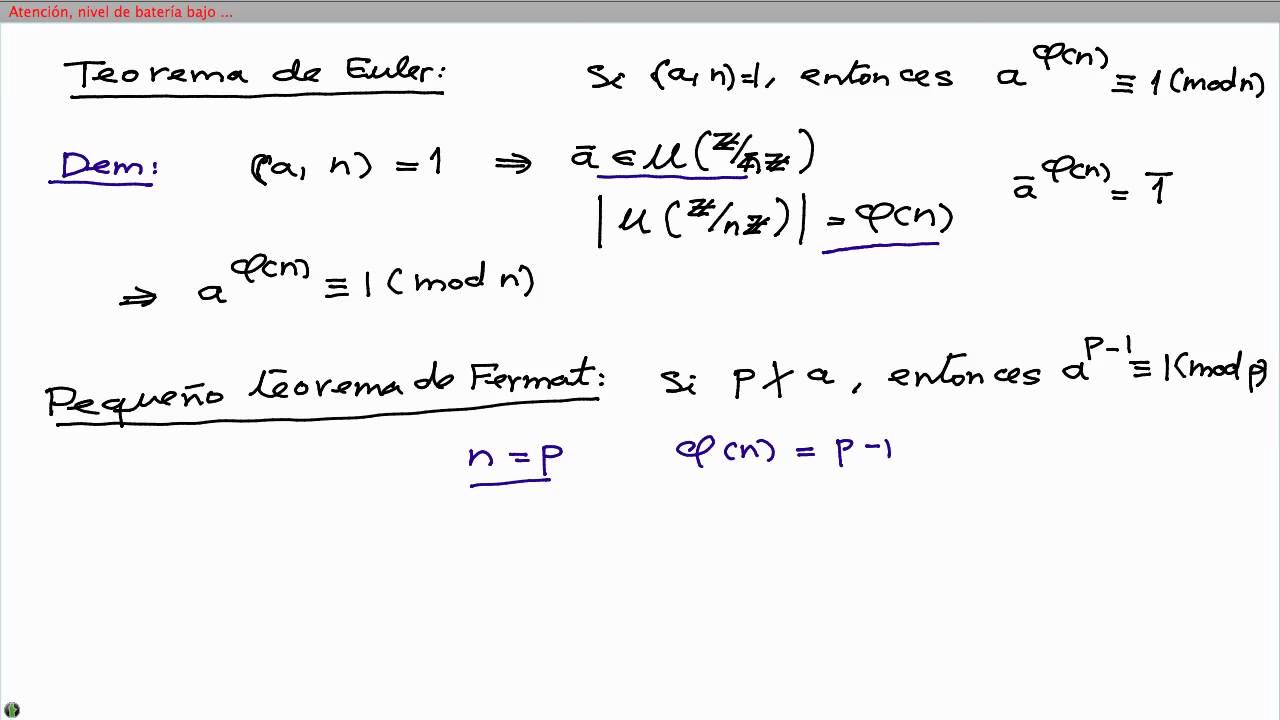 Atención, nivel de batería bajo ...
Teorema de Euler: Si (a, n)=1, entonces a^φ(n) ≡ 1 (mod n)
Dem: (a, n) = 1 ⇒ ā ∈ U(ℤ/nℤ)
|U(ℤ/nℤ)| = φ(n) ā^φ(n) = 1̄
⇒ a^φ(n) ≡ 1 (mod n)
Pequeño teorema de Fermat: Si p ∤ a, entonces a^p-1 ≡ 1 (mod p)
n = p φ(n) = p-1